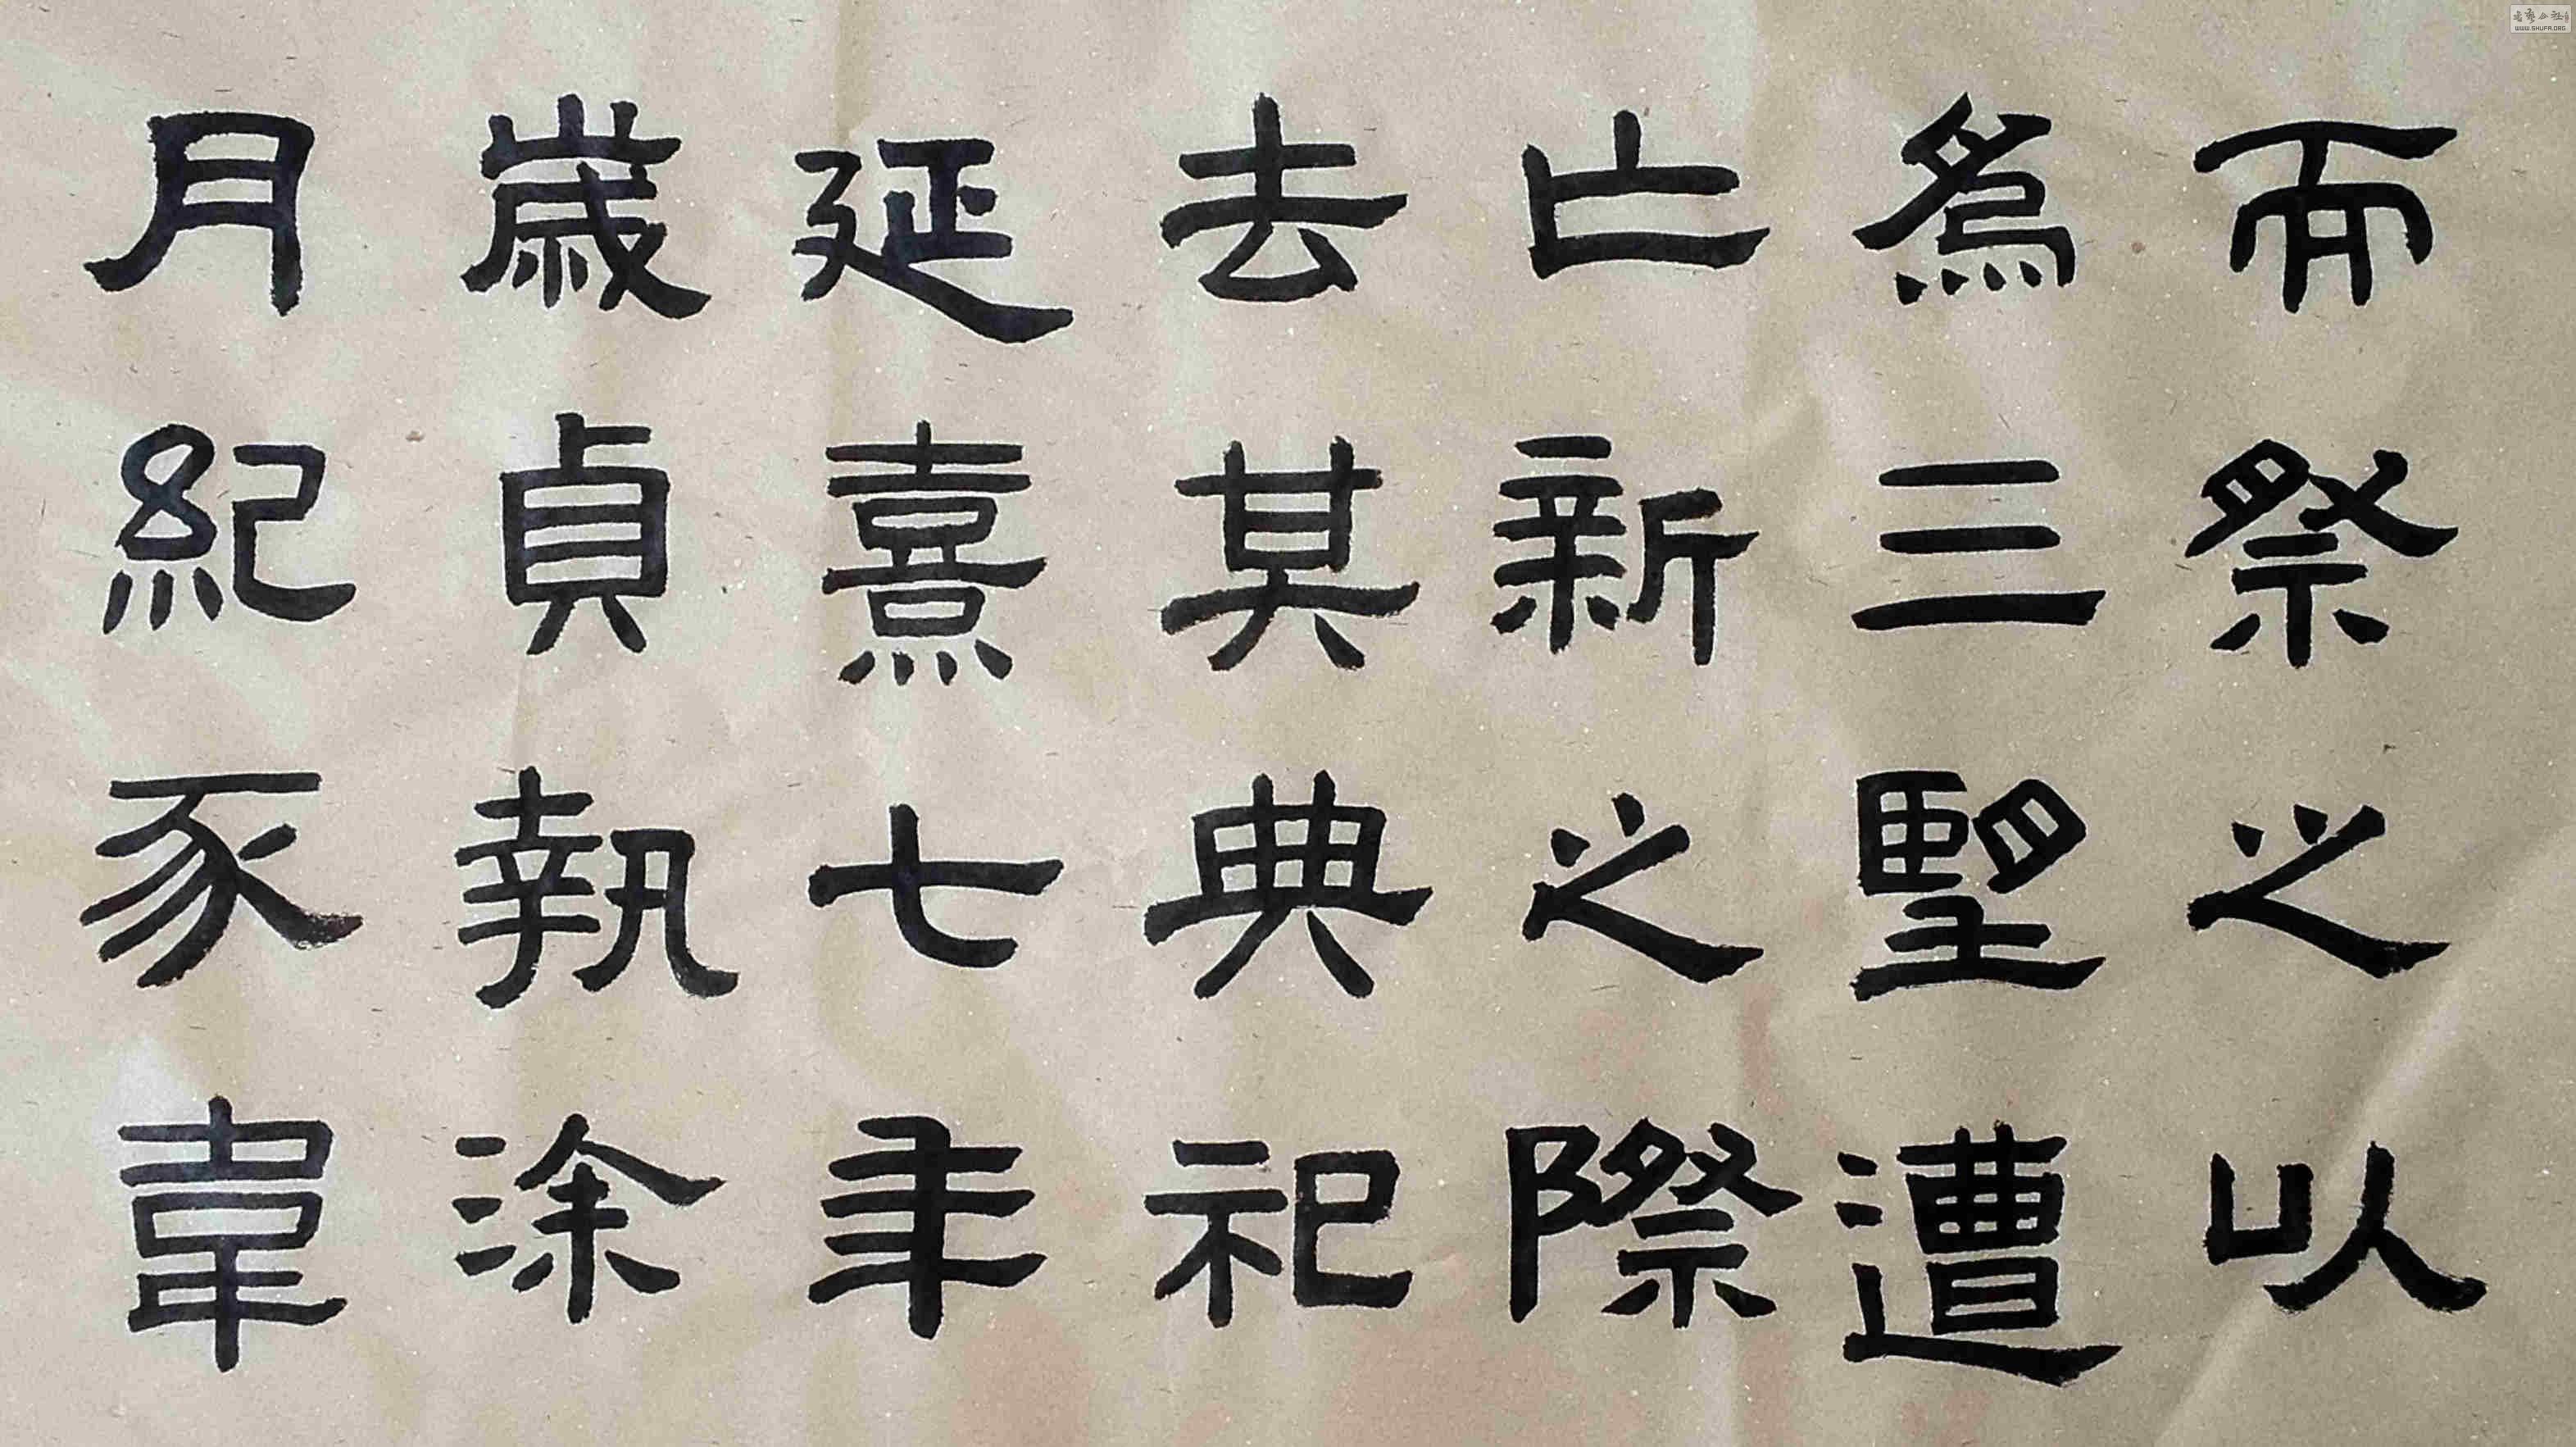 而祭之以
爲三朢遭
亡新之際
去其典祀
延熹七年
歲貞執涂
月紀豕韋
WWW.SHUFA.ORG